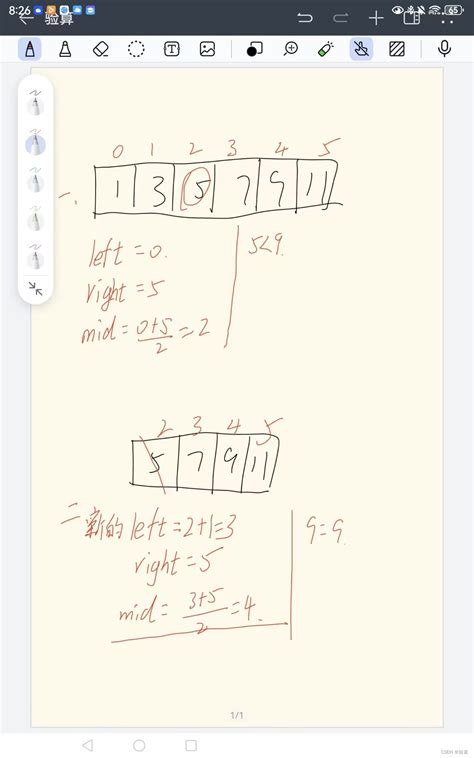 8:26
65
验算
0 1 2 3 4 5
一、 1 3 5 7 9 11
left = 0. 5<9.
right = 5
mid = 0+5/2 = 2
2 3 4 5
5 7 9 11
二 新的left = 2+1=3 9=9.
right = 5
mid = 3+5/2 = 4.
1/1